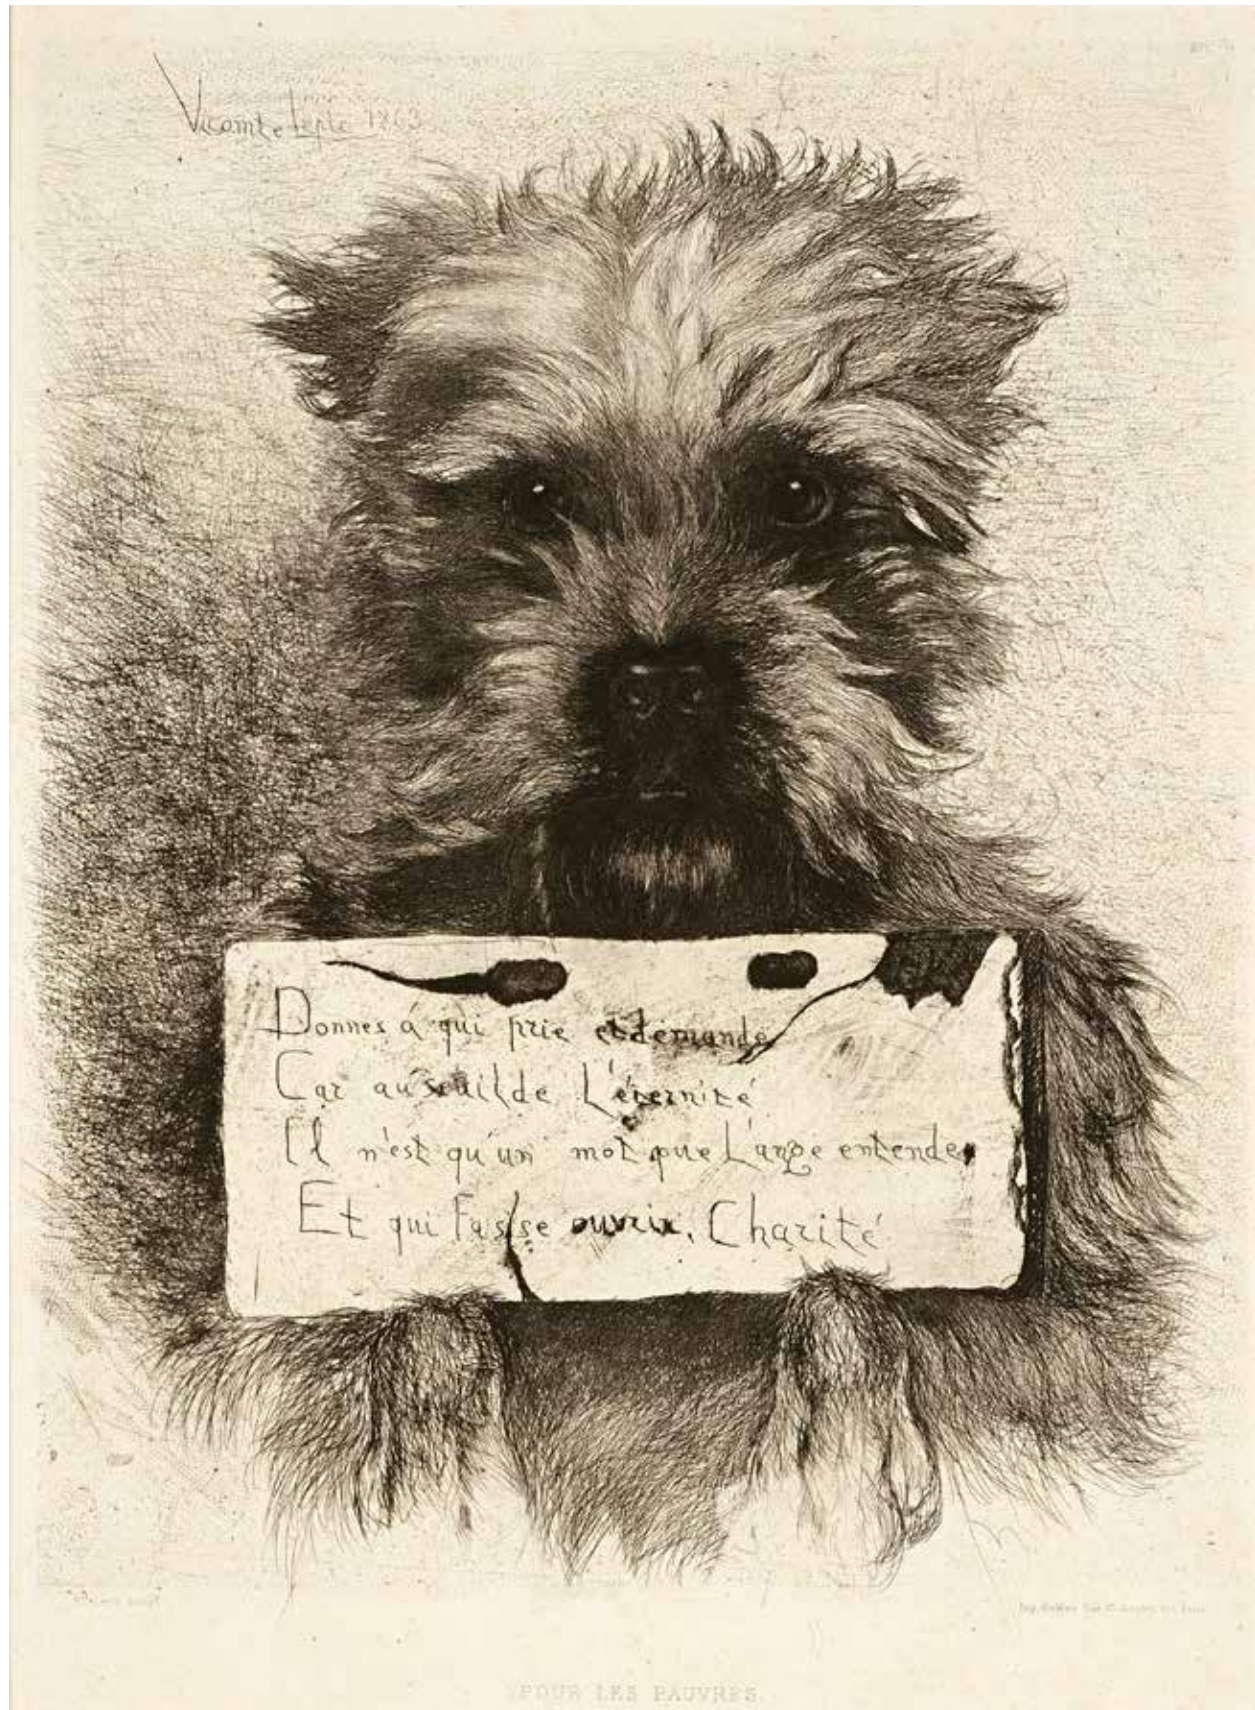 Vicomte Lepic 1863
Donnes à qui prie et demande
Car au seuil de L'éternité
Il n'est qu'un mot que L'ange entende,
Et qui Fasse ouvrir, Charité
POUR LES PAUVRES